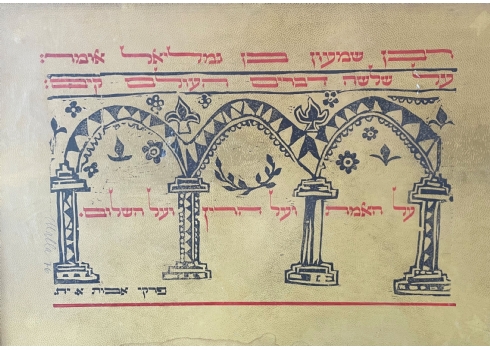 רבן שמעון בן גמליאל אומר:
על שלשה דברים העולם קים:
על האמת ועל הדין ועל השלום:
פרקי אבות א יח